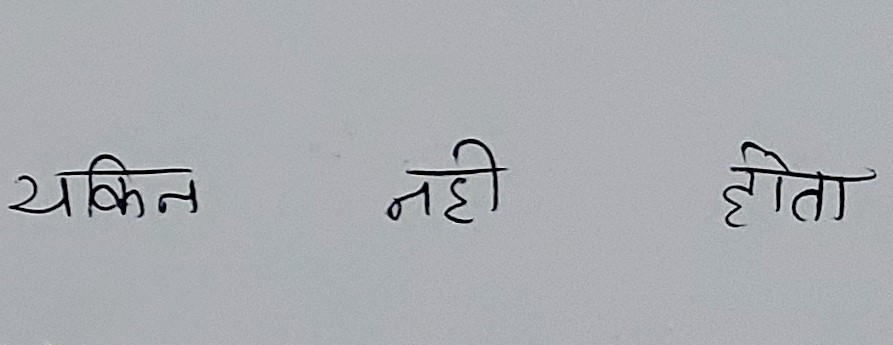 यकिन नही होता